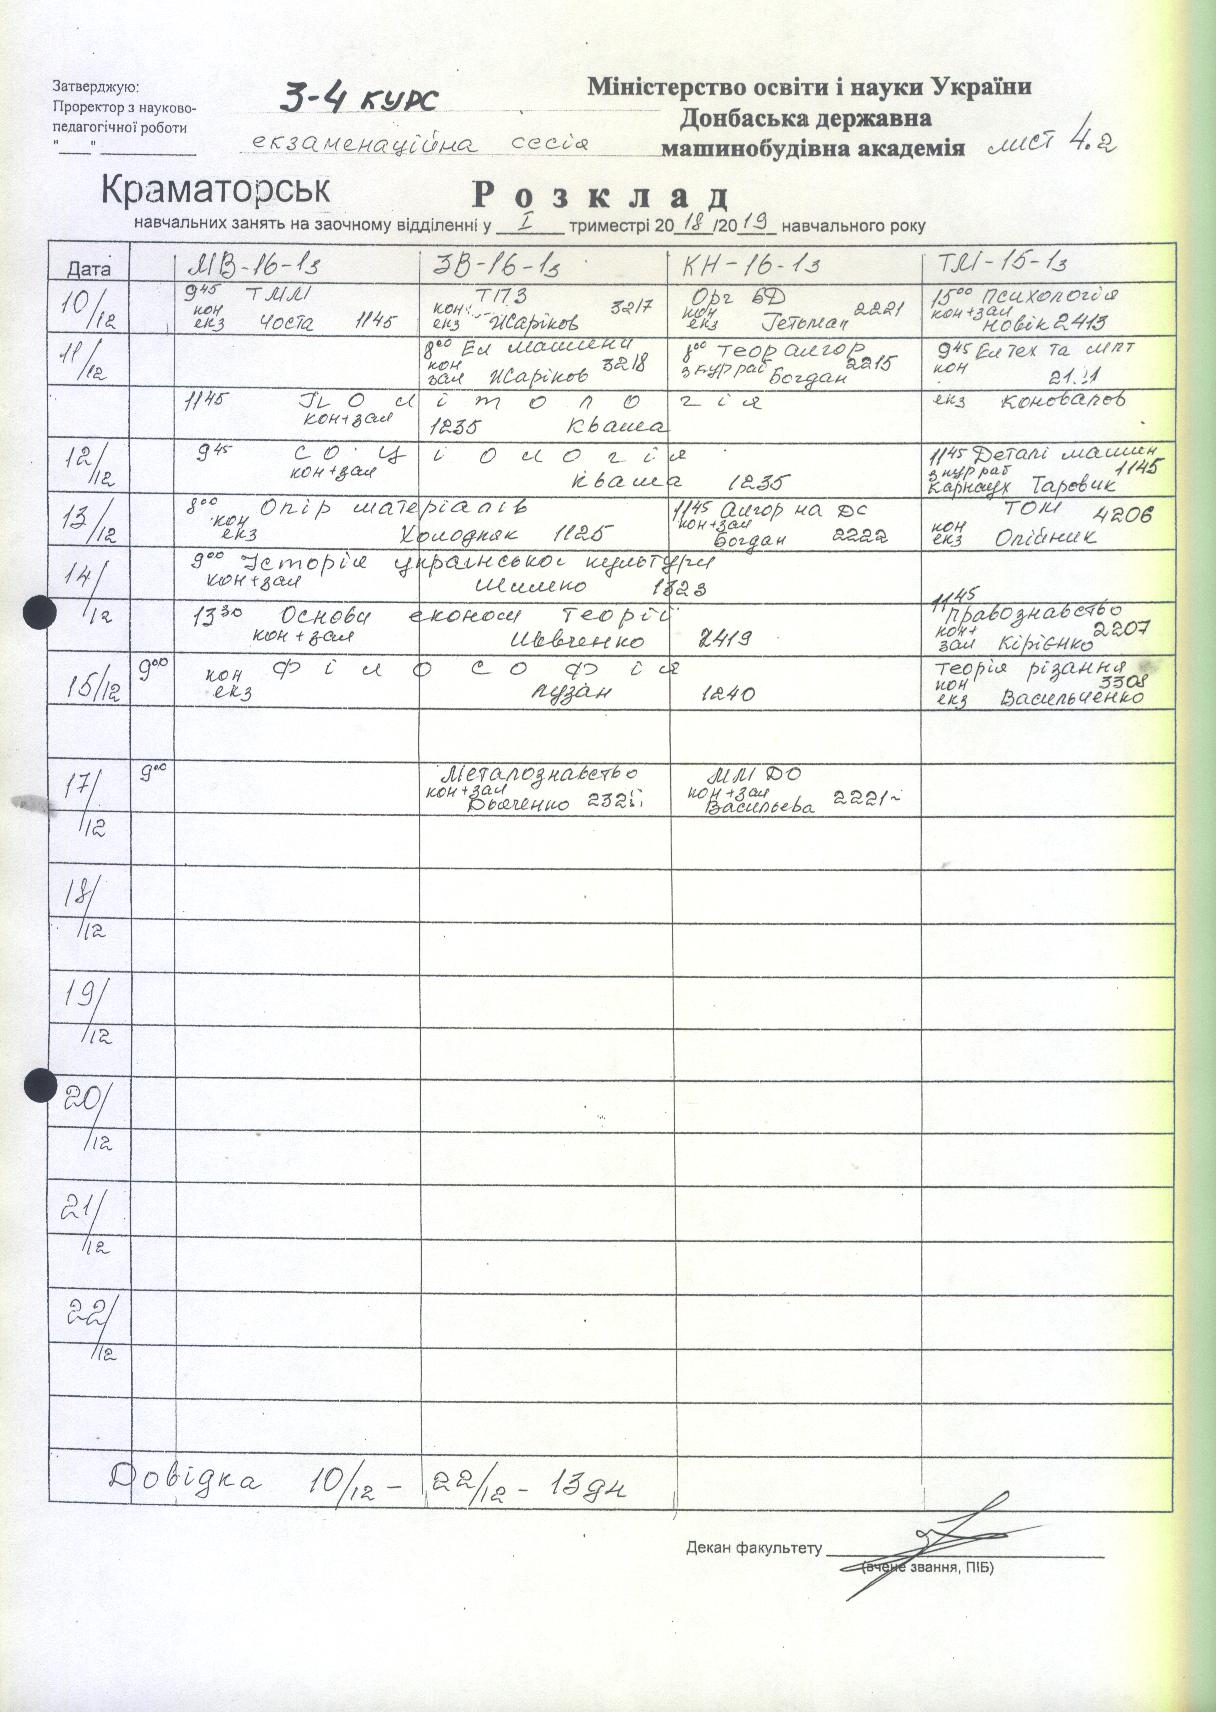 Затверджую:
Проректор з науково-
педагогічної роботи
"___" ____________
3-4 курс
екзаменаційна сесія
Міністерство освіти і науки України
Донбаська державна
машинобудівна академія
лист 4.2
Краматорськ
Розклад
навчальних занять на заочному відділенні у I триместрі 2018/2019 навчального року
Дата МВ-16-1з ЗВ-16-1з КН-16-1з ТМ-15-1з
10/12
9⁴⁵ ТММ
кон
екз Чоста 1145
ТПЗ
кон 3217
екз Жаріков
Орг БД
кон 2221
екз Гетьман
15⁰⁰ Психологія
кон+зал
Новік 2413
11/12
8⁰⁰ Ел машини
кон 3218
зал Жаріков
8⁰⁰ Теор алгор
з кур раб 2215
Богдан
9⁴⁵ Ел тех та мпт
кон
екз Коновалов
11⁴⁵ Політологія
кон+зал 1235 Кваша
12/12
9⁴⁵ Соціологія
кон+зал Кваша 1235
11⁴⁵ Деталі машин
з кур раб 1145
Карнаух Таровик
13/12
8⁰⁰ Опір матеріалів
кон
екз Холодняк 1125
11⁴⁵ Алгор на ДС
кон+зал
Богдан 2222
ТОМ 4206
кон
екз Олійник
14/12
9⁰⁰ Історія української культури
кон+зал Шимко 1323
13³⁰ Основи економ теорії
кон+зал Шевченко 2419
11⁴⁵
Правознавство
кон+ 2207
зал Кірієнко
15/12
9⁰⁰
Філософія
кон
екз Пузан 1240
Теорія різання
кон 3308
екз Васильченко
17/12
9⁰⁰
Металознавство
кон+зал
Дьяченко
ММ ДО
кон+зал
Васильева 2221
18/12
19/12
20/12
21/12
22/12
Довідка 10/12 - 22/12 - 13дн
Декан факультету
(вчене звання, ПІБ)